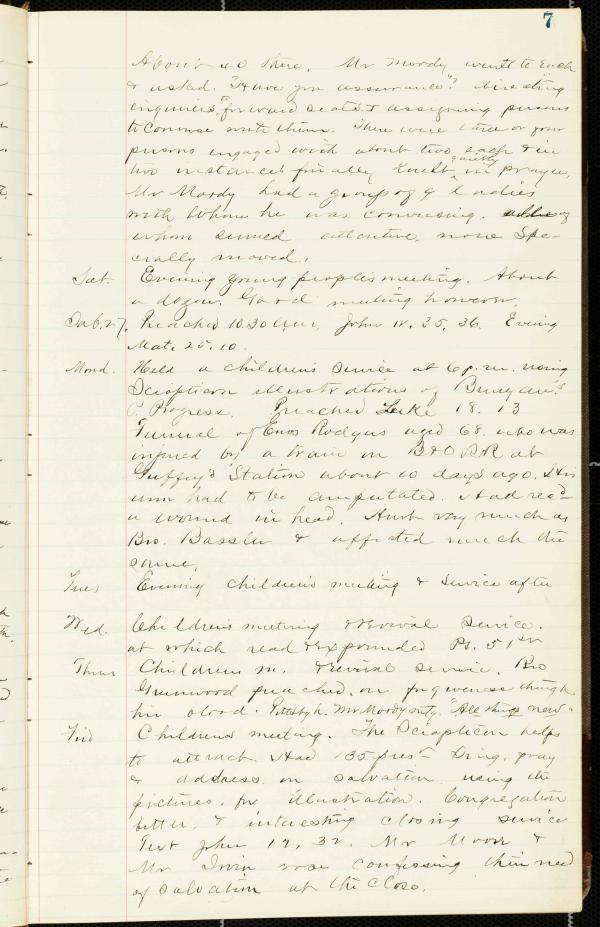 7
About 40 there. Mr Moody went to each
& asked. "Have you assurance"? directing
inquirers forward seats & assigning persons
to converse with them. There were three or four
persons engaged with about two each & in
two instances finally knelt quietly in prayer.
Mr Moody had a group of 9 Ladies
with whom he was conversing. of
whom seemed attentive, none Spe-
cially moved.
Sat. Evening young people's meeting. About
a dozen. Good meeting however.
Sab. 27. Preached 10.30 a.m. John 18. 35. 36. Evening
Mat. 25. 10.
Mond. Held a children's service at 6 p.m. using
Sciopticon illustrations of Bunyan's
P. Progress. Preached Luke 18. 13
Funeral of Enos Rodgers aged 68. who was
injured by a train on B&O RR at
Guffey's Station about 10 days ago. His
arm had to be amputated. Had recd
a wound in head. Hurt very much as
Bro. Bassler & affected much the
same.
Tues Evening children's meeting & service after
Wed. Children's meeting & revival service.
at which read & expounded Ps. 51st
Thurs Children's m. & revival service. Bro
Greenwood preached on forgiveness through
his blood. Pittsbgh. Mr Moody "All things new"
Frid Children's meeting. The Sciopticon helps
to attract. Had 135 prest Sing, pray
& address on salvation using the
pictures for illustration. Congregation
better & interesting closing service
Text John 12, 32. Mr Moore &
Mr Irvin rose confessing their need
of salvation at the close.